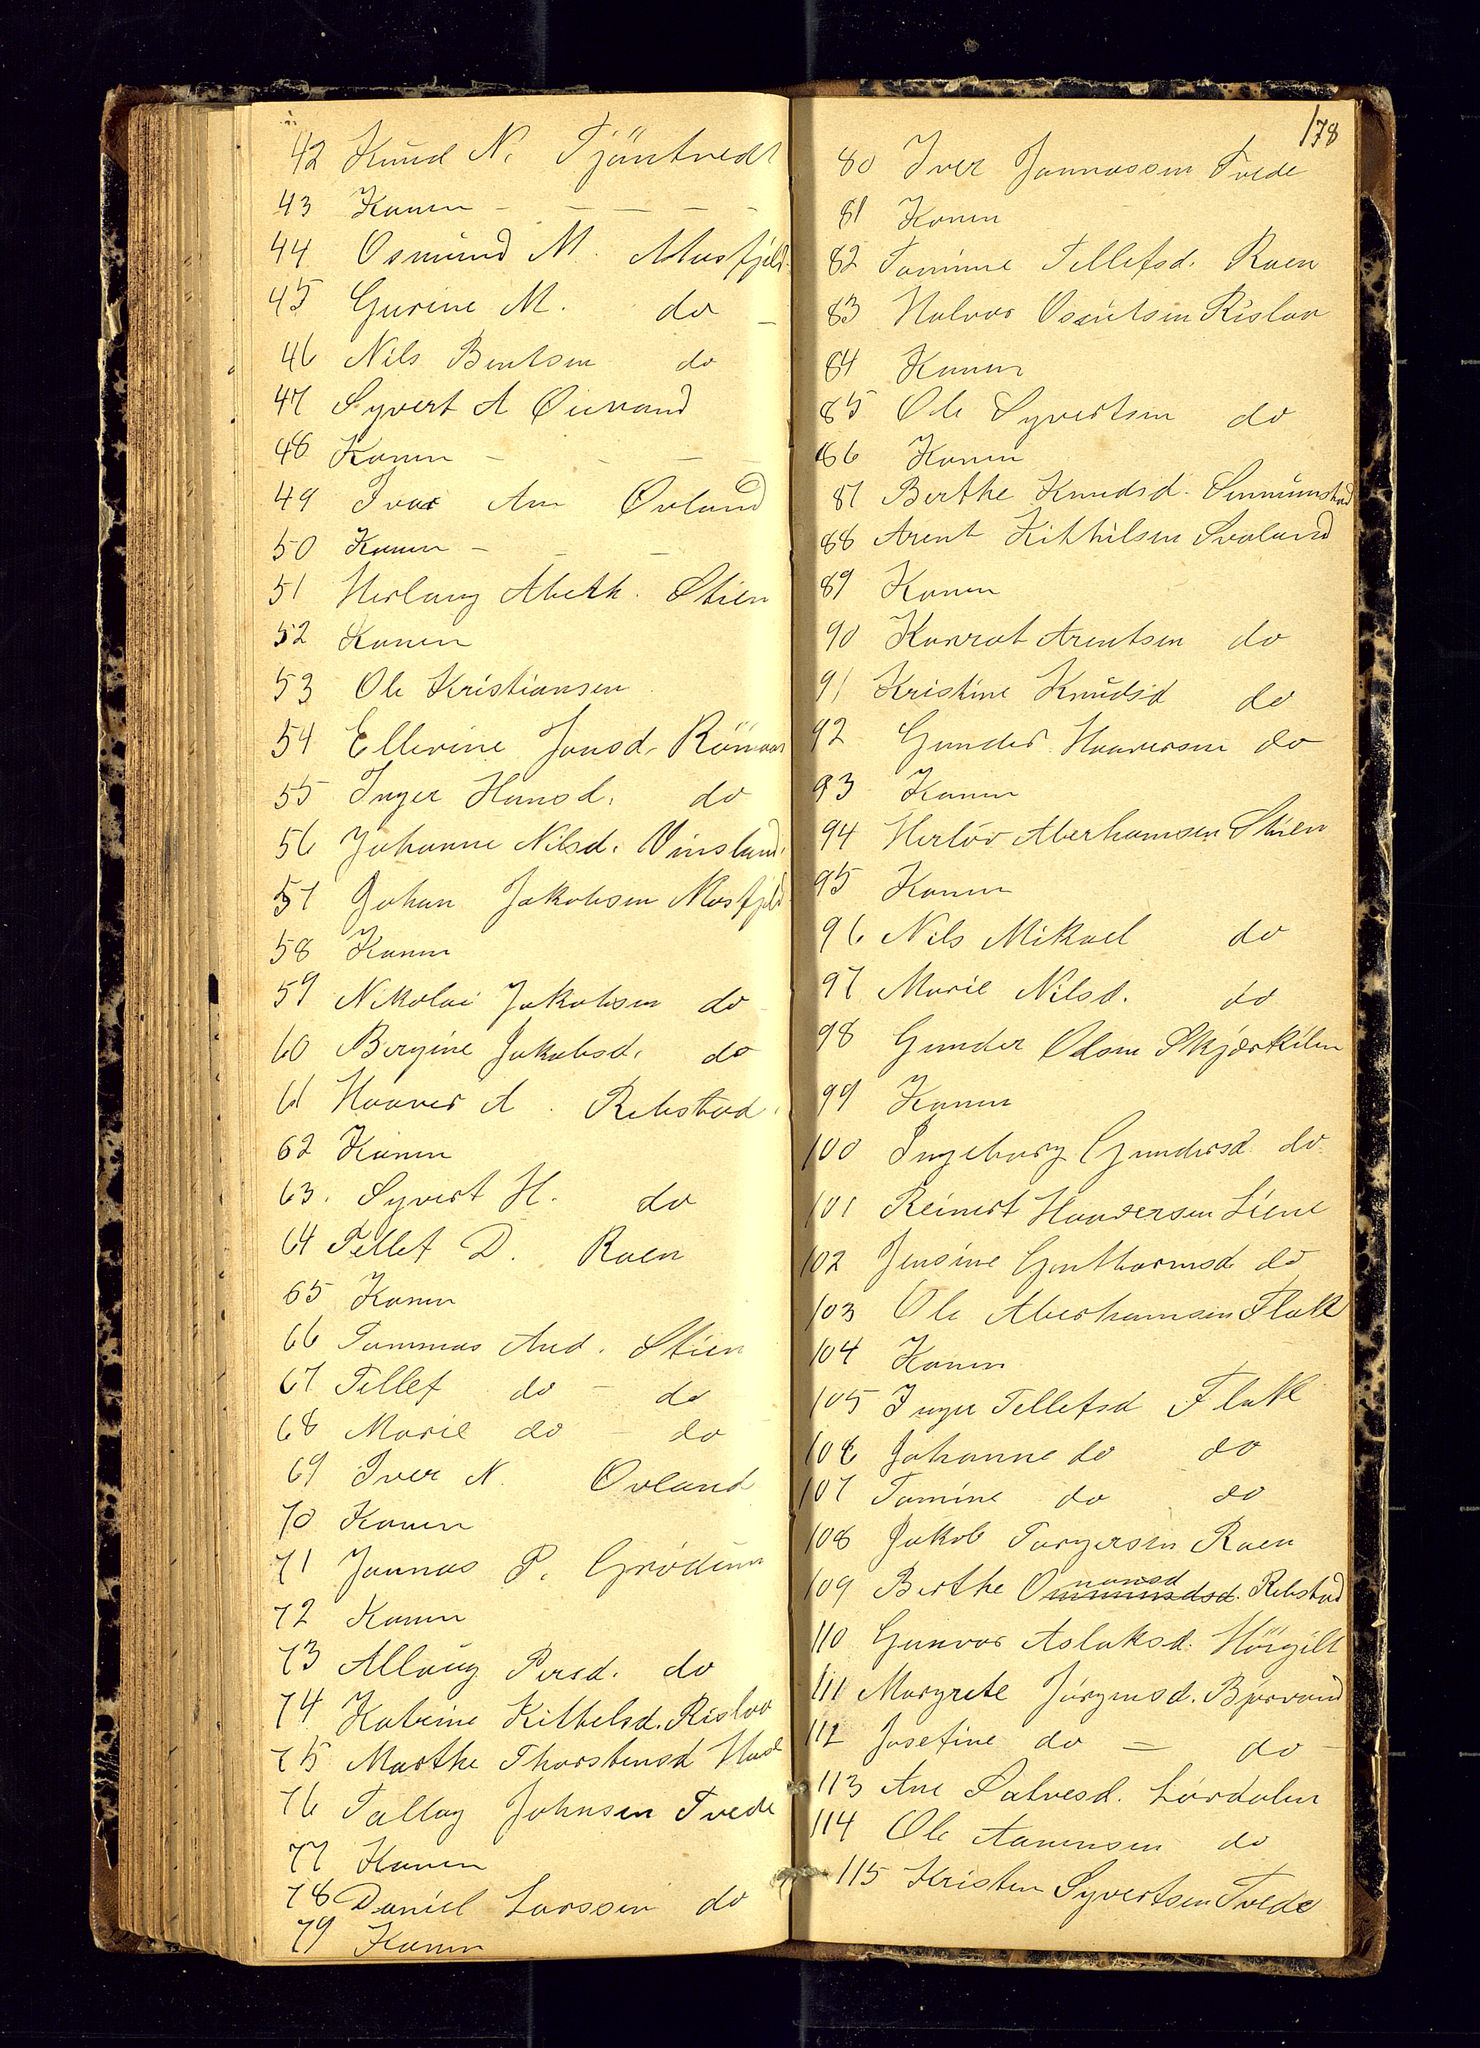 42 Knud N. Tjöntvedt
43 Konen - - - - -
44 Osmund M. Mosfjeld
45 Gurine M. do
46 Nils Bentsen do
47 Syvert A Öievand
48 Konen - - - -
49 Ivar Am Ovland
50 Konen - - -
51 Herlaug Abeth. Stien
52 Konen
53 Ole Kristiansen
54 Ellevine Jonsd. Rönaas
55 Inger Hansd. do
56 Johanne Nilsd. Vinsland.
57 Johan Jakobsen Mosfjeld
58 Konen
59 Nikolai Jakobsen do
60 Bergine Jakobsd. do
61 Haaver A. Rebstad.
62 Konen
63. Syvert H. do
64 Tellef D. Roen
65 Konen
66 Tommas And. Stien
67 Tellef do - do
68 Marie do - do
69 Iver N. Ovland
70 Konen
71 Jonnas P. Grödum
72 Konen
73 Allaug Persd. do
74 Katrine Kittelsd. Rislaa
75 Marthe Thorstensd Hasl
76 Tallag Johnsen Tvede
77 Konen
78 Daniel Larssen do
79 Konen
178
80 Iver Jonnassen Tvede
81 Konen
82 Tomine Tellefsd. Roen
83 Halvor Osultsen Rislaa
84 Konen
85 Ole Syvertsen do
86 Konen
87 Berthe Knudsd. Simmunstad
88 Arent Kittilsen Svaland
89 Konen
90 Konrat Arentsen do
91 Kristine Knudsd do
92 Gunder Haaversen do
93 Konen
94 Herlöv Aberhamsen Stien
95 Konen
96 Nils Mikael do
97 Marie Nilsd. do
98 Gunder Olsen Skjærkilen
99 Konen
100 Ingeborg Gundersd. do
101 Reinert Haaversen Liene
102 Jensine Gunthormsd do
103 Ole Aberhamsen Flak
104 Konen
105 Inger Tellefsd Flak
106 Johanne do do
107 Tomine do do
108 Jakob Torgersen Roen
109 Berthe Omonsd. Rebstad
110 Gunvor Aslaksd. Hörgilt
111 Margrete Jörgensd. Bjørvand
112 Josefine do = do -
113 Ane Salvesd. Lördalen
114 Ole Aanensen do
115 Kristen Syvertsen Tvede